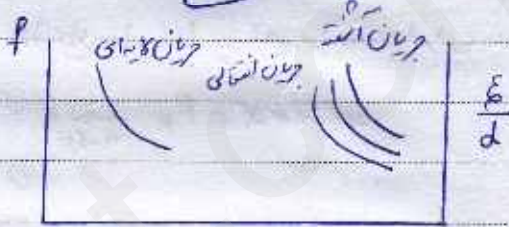 f
جریان لایه‌ای
جریان انتقالی
جریان آشفته
ε/d